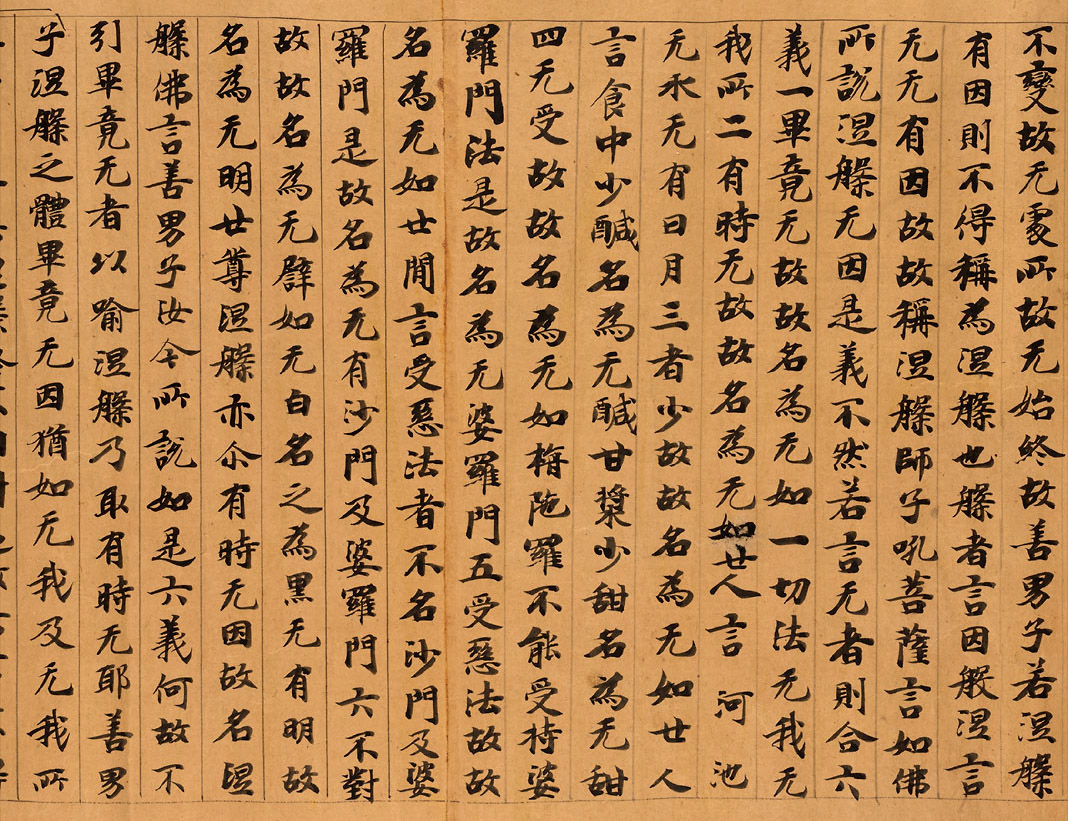 不變故无處所故无始終故善男子若涅槃
有因則不得稱為涅槃也槃者言因般涅言
无无有因故故稱涅槃師子吼菩薩言如佛
所說涅槃无因是義不然若言无者則合六
義一畢竟无故故名為无如一切法无我无
我所二有時无故故名為无如世人言河池
无水无有日月三者少故故名為无如世人
言食中少醎名為无醎甘漿少甜名為无甜
四无受故故名為无如栴陁羅不能受持婆
羅門法是故名為无婆羅門五受惡法故故
名為无如世間言受惡法者不名沙門及婆
羅門是故名為无有沙門及婆羅門六不對
故故名為无譬如无白名之為黑无有明故
名為无明世尊涅槃亦尒有時无因故名涅
槃佛言善男子汝今所說如是六義何故不
引畢竟无者以喻涅槃乃取有時无耶善男
子涅槃之體畢竟无因猶如无我及无我所